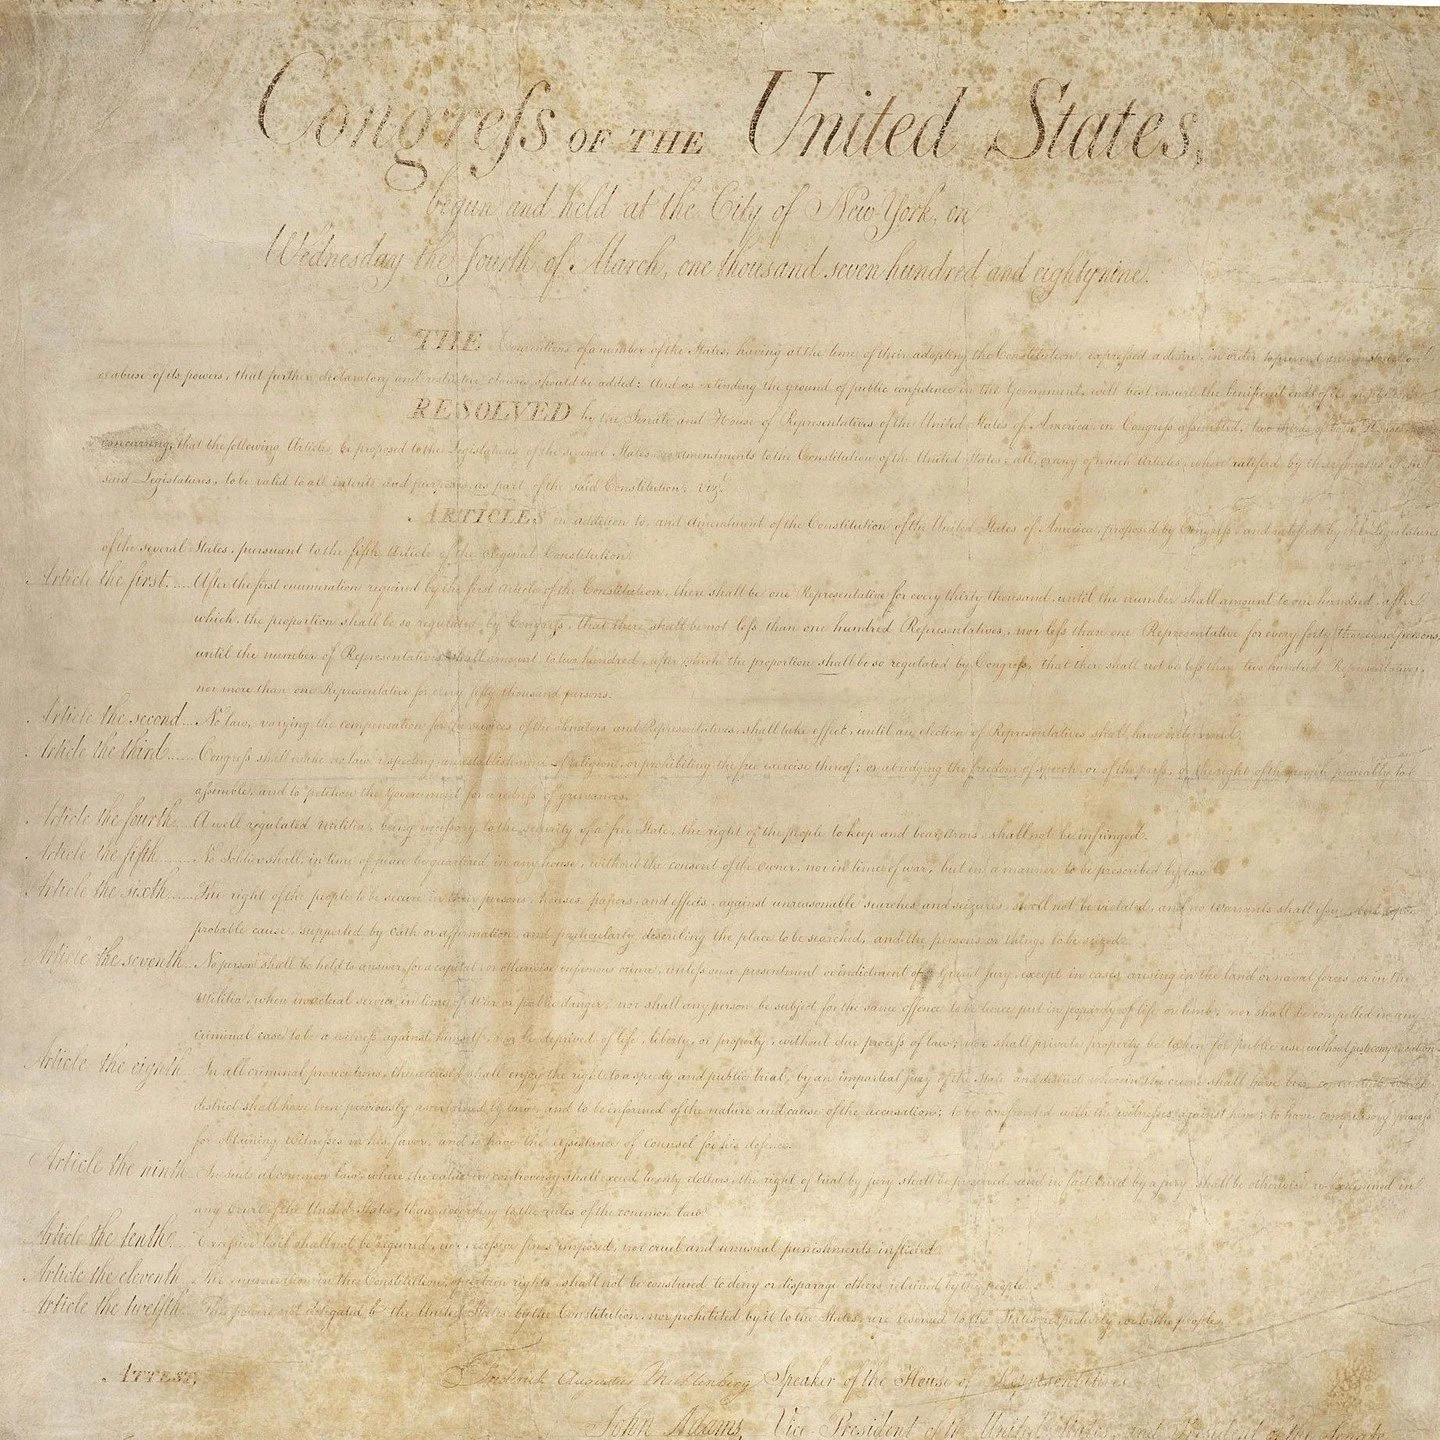 Congreſs OF THE United States,
begun and held at the City of New-York, on
Wednesday the fourth of March, one thousand seven hundred and eighty nine.
THE Conventions of a number of the States, having at the time of their adopting the Constitution, expressed a desire, in order to prevent misconstruction or
abuse of its powers, that further declaratory and restrictive clauses should be added: And as extending the ground of public confidence in the Government, will best ensure the beneficent ends of its
RESOLVED by the Senate and House of Representatives of the United States of America, in Congreſs aſsembled, two thirds of both Houses
concurring, that the following Articles be proposed to the Legislatures of the several States, as amendments to the Constitution of the United States, all, or any of which Articles, when ratified by three fourths of the
said Legislatures, to be valid to all intents and purposes, as part of the said Constitution; viz.
ARTICLES in addition to, and Amendment of the Constitution of the United States of America, proposed by Congreſs, and ratified by the Legislatures
of the several States, pursuant to the fifth Article of the original Constitution.
Article the first..... After the first enumeration required by the first Article of the Constitution, there shall be one Representative for every thirty thousand, until the number shall amount to one hundred, after
which, the proportion shall be so regulated by Congreſs, that there shall be not leſs than one hundred Representatives, nor leſs than one Representative for every forty thousand persons,
until the number of Representatives shall amount to two hundred, after which the proportion shall be so regulated by Congreſs, that there shall not be leſs than two hundred Representatives,
nor more than one Representative for every fifty thousand persons.
Article the second... No law, varying the compensation for the services of the Senators and Representatives, shall take effect, until an election of Representatives shall have intervened.
Article the third...... Congreſs shall make no law respecting an establishment of religion, or prohibiting the free exercise thereof; or abridging the freedom of speech, or of the preſs; or the right of the people peaceably to
aſsemble, and to petition the Government for a redreſs of grievances.
Article the fourth... A well regulated Militia, being neceſsary to the security of a free State, the right of the people to keep and bear Arms, shall not be infringed.
Article the fifth ....... No Soldier shall, in time of peace be quartered in any house, without the consent of the Owner, nor in time of war, but in a manner to be prescribed by law.
Article the sixth...... The right of the people to be secure in their persons, houses, papers, and effects, against unreasonable searches and seizures, shall not be violated, and no Warrants shall iſsue, but upon
probable cause, supported by Oath or affirmation, and particularly describing the place to be searched, and the persons or things to be seized.
Article the seventh... No person shall be held to answer for a capital, or otherwise infamous crime, unleſs on a presentment or indictment of a Grand Jury, except in cases arising in the land or naval forces, or in the
Militia, when in actual service in time of War or public danger; nor shall any person be subject for the same offence to be twice put in jeopardy of life or limb; nor shall be compelled in any
criminal case to be a witneſs against himself, nor be deprived of life, liberty, or property, without due proceſs of law; nor shall private property be taken for public use, without just compensation.
Article the eighth.. In all criminal prosecutions, the accused shall enjoy the right to a speedy and public trial, by an impartial jury of the State and district wherein the crime shall have been committed, which
district shall have been previously ascertained by law, and to be informed of the nature and cause of the accusation; to be confronted with the witneſses against him; to have compulsory proceſs
for obtaining witneſses in his favor, and to have the aſsistance of counsel for his defence.
Article the ninth.. In suits at common law, where the value in controversy shall exceed twenty dollars, the right of trial by jury shall be preserved, and no fact tried by a jury shall be otherwise re-examined in
any Court of the United States, than according to the rules of the common law.
Article the tenth... Exceſsive bail shall not be required, nor exceſsive fines imposed, nor cruel and unusual punishments inflicted.
Article the eleventh.. The enumeration in the Constitution, of certain rights, shall not be construed to deny or disparage others retained by the people.
Article the twelfth... The powers not delegated to the United States by the Constitution, nor prohibited by it to the States, are reserved to the States respectively, or to the people.
ATTEST,
Frederick Augustus Muhlenberg Speaker of the House of Representatives
John Adams, Vice-President of the United States, and President of the Senate